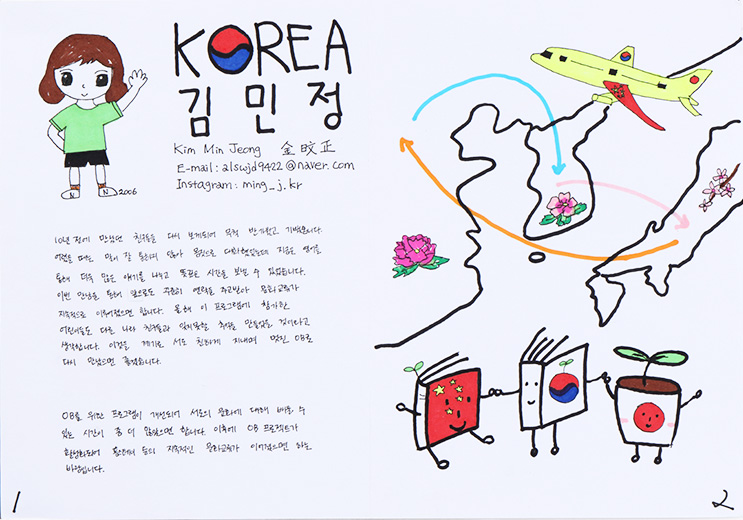 KOREA
김민정
Kim Min Jeong 金旼正
E-mail : alswjd9422@naver.com
Instagram : ming_j.kr
N N 2006
10년 전에 만났던 친구들을 다시 보게되어 무척 반가웠고 기뻤습니다.
어렸을 때는 말이 잘 통하지 않아 몸짓으로 대화했었는데 지금은 영어를
통해 더욱 많은 얘기를 나누고 뜻깊은 시간을 보낼 수 있었습니다.
이번 만남을 통해 앞으로도 꾸준히 연락을 주고받아 문화교류가
지속적으로 이루어졌으면 합니다. 올해 이 프로그램에 참가한
어린이들도 다른 나라 친구들과 잊지못할 추억을 만들었을 것이라고
생각합니다. 이것을 계기로 서로 친하게 지내며 멋진 OB로
다시 만났으면 좋겠습니다.
OB를 위한 프로그램이 개선되어 서로의 문화에 대해 배울 수
있는 시간이 좀 더 많았으면 합니다. 이후에 OB 프로젝트가
활성화되어 한·중·일의 지속적인 문화교류가 이어졌으면 하는
바램입니다.
1
2